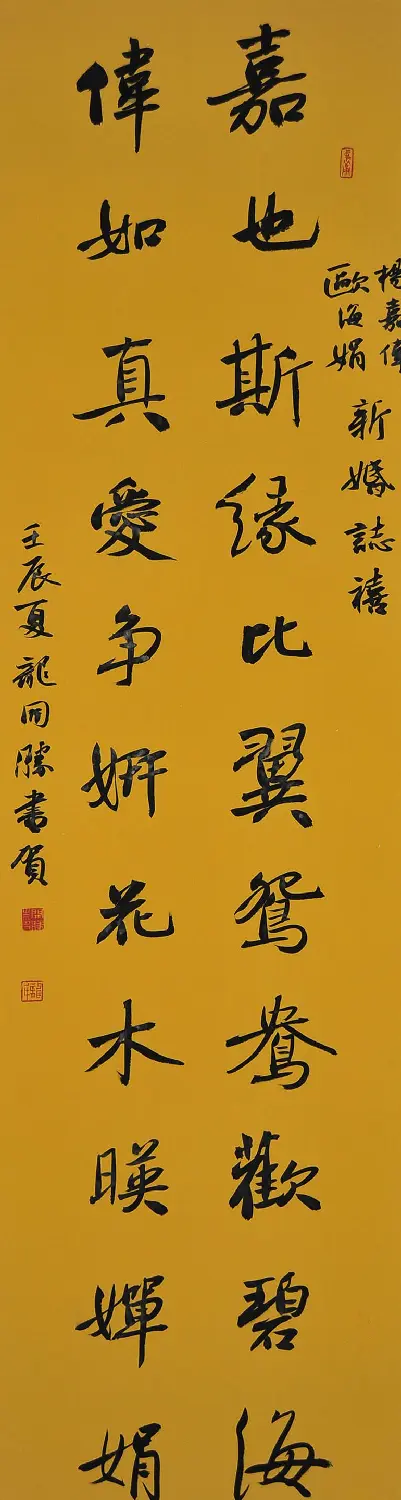 楊嘉偉
歐海娟
新婚誌禧
嘉也斯緣比翼鴛鴦歡碧海
偉如真愛争妍花木暎嬋娟
壬辰夏龍同勝書賀